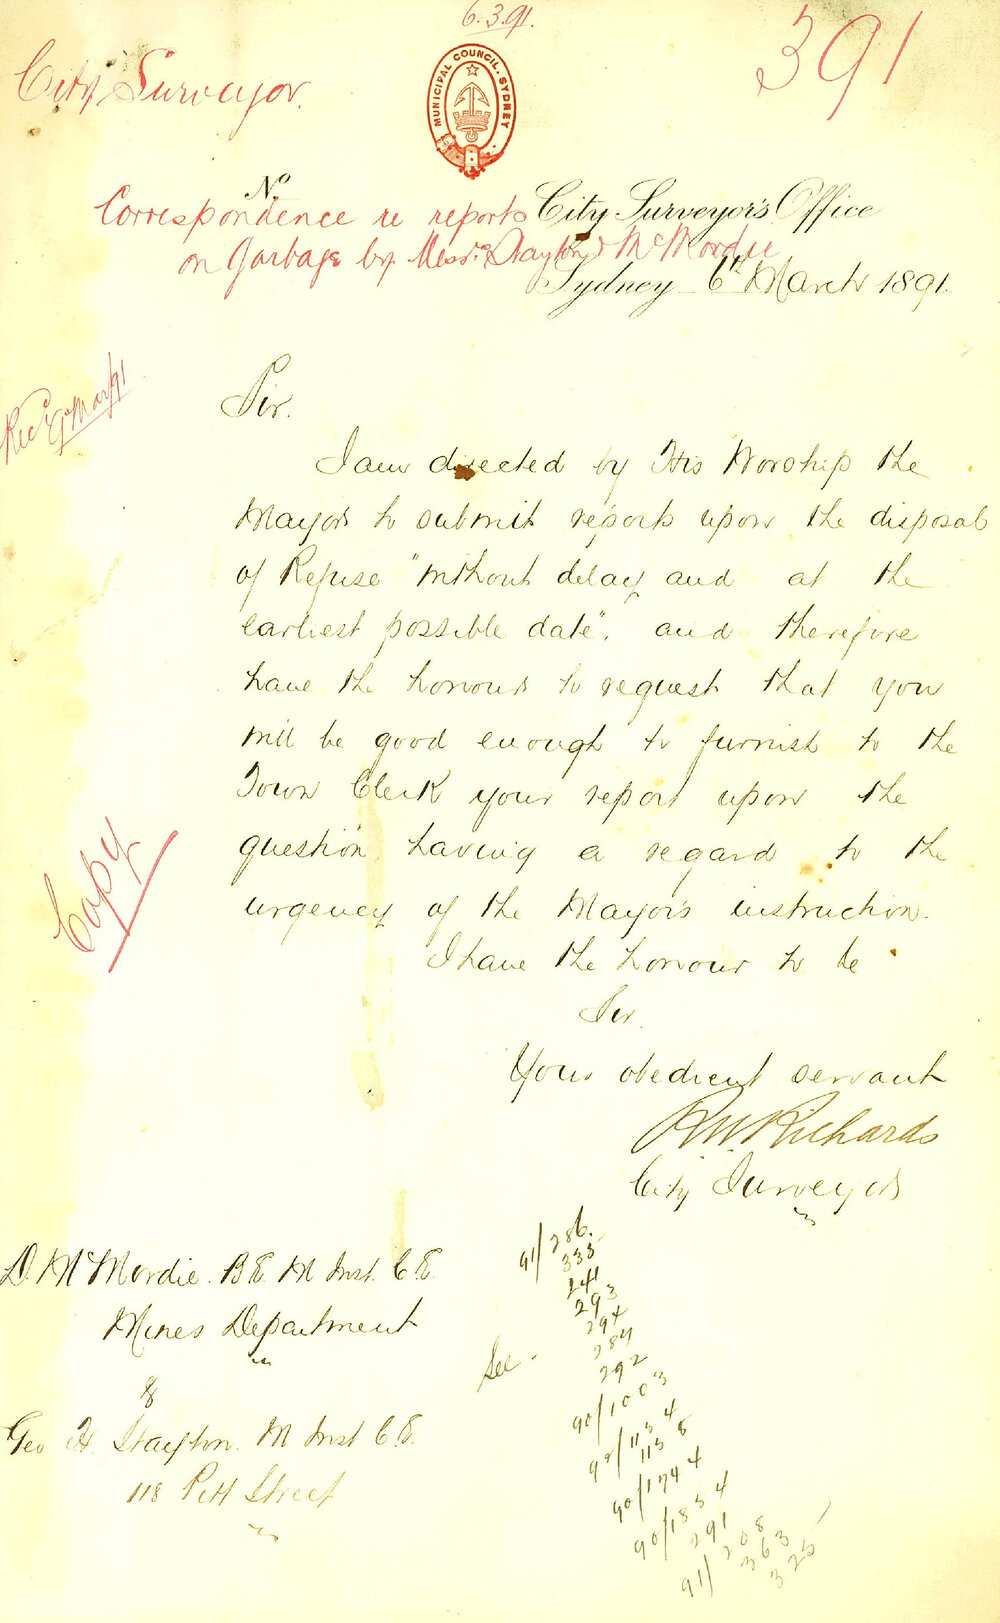 6.3.91.
City Surveyor.
391
MUNICIPAL COUNCIL. SYDNEY
No.
City Surveyor's Office
Correspondence re reports
on Garbage by Messrs. Stayton & McMordie
Sydney 6th March 1891
Recd 6 Mar/91
Sir.
I am directed by His Worship the
Mayor to submit reports upon the disposal
of Refuse "without delay and at the
earliest possible date". and therefore
have the honour to request that you
will be good enough to furnish to the
Town Clerk your report upon the
question having a regard to the
urgency of the Mayor's instruction.
Copy
I have the honour to be
Sir.
Your obedient servant
R W. Richards
City Surveyor
D. McMordie. B.E. M Inst. C.E.
Mines Department
&
Geo H. Stayton. M Inst C.E.
118 Pitt Street
See
91/286.
333
241
293
294
284
292
90/1003
90/1134
1138
90/1744
90/1834
291
91/208
363
325